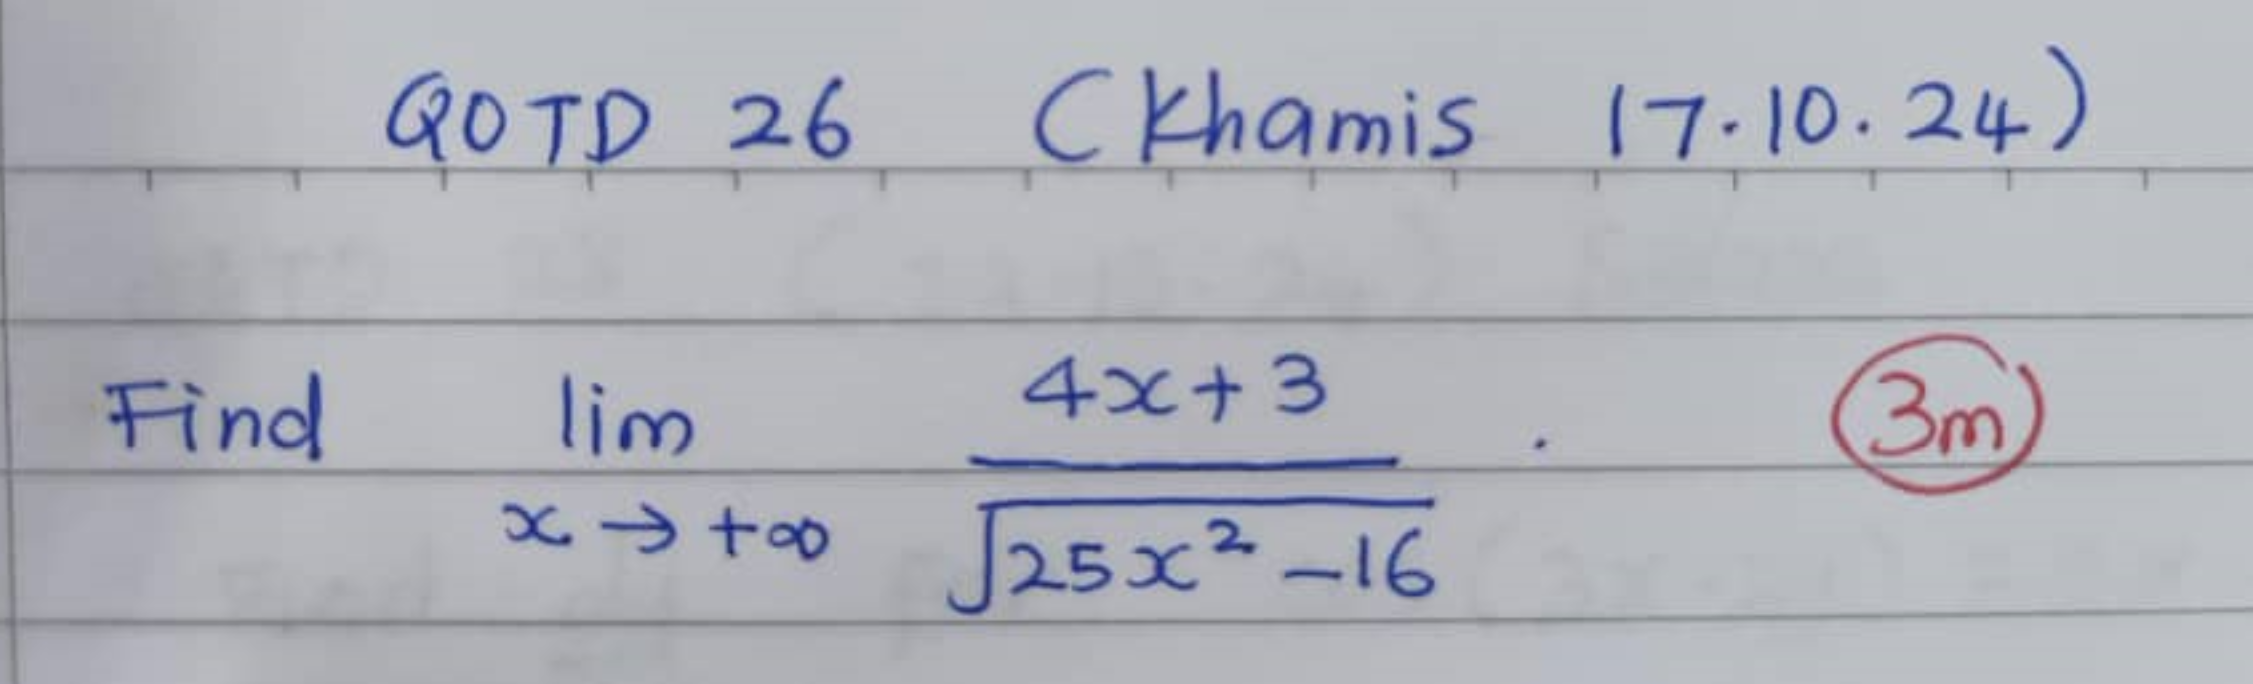 QOTD 26 (Khamis 17.10.24)
Find lim x→+∞ (4x+3)/√(25x²-16) . 3m